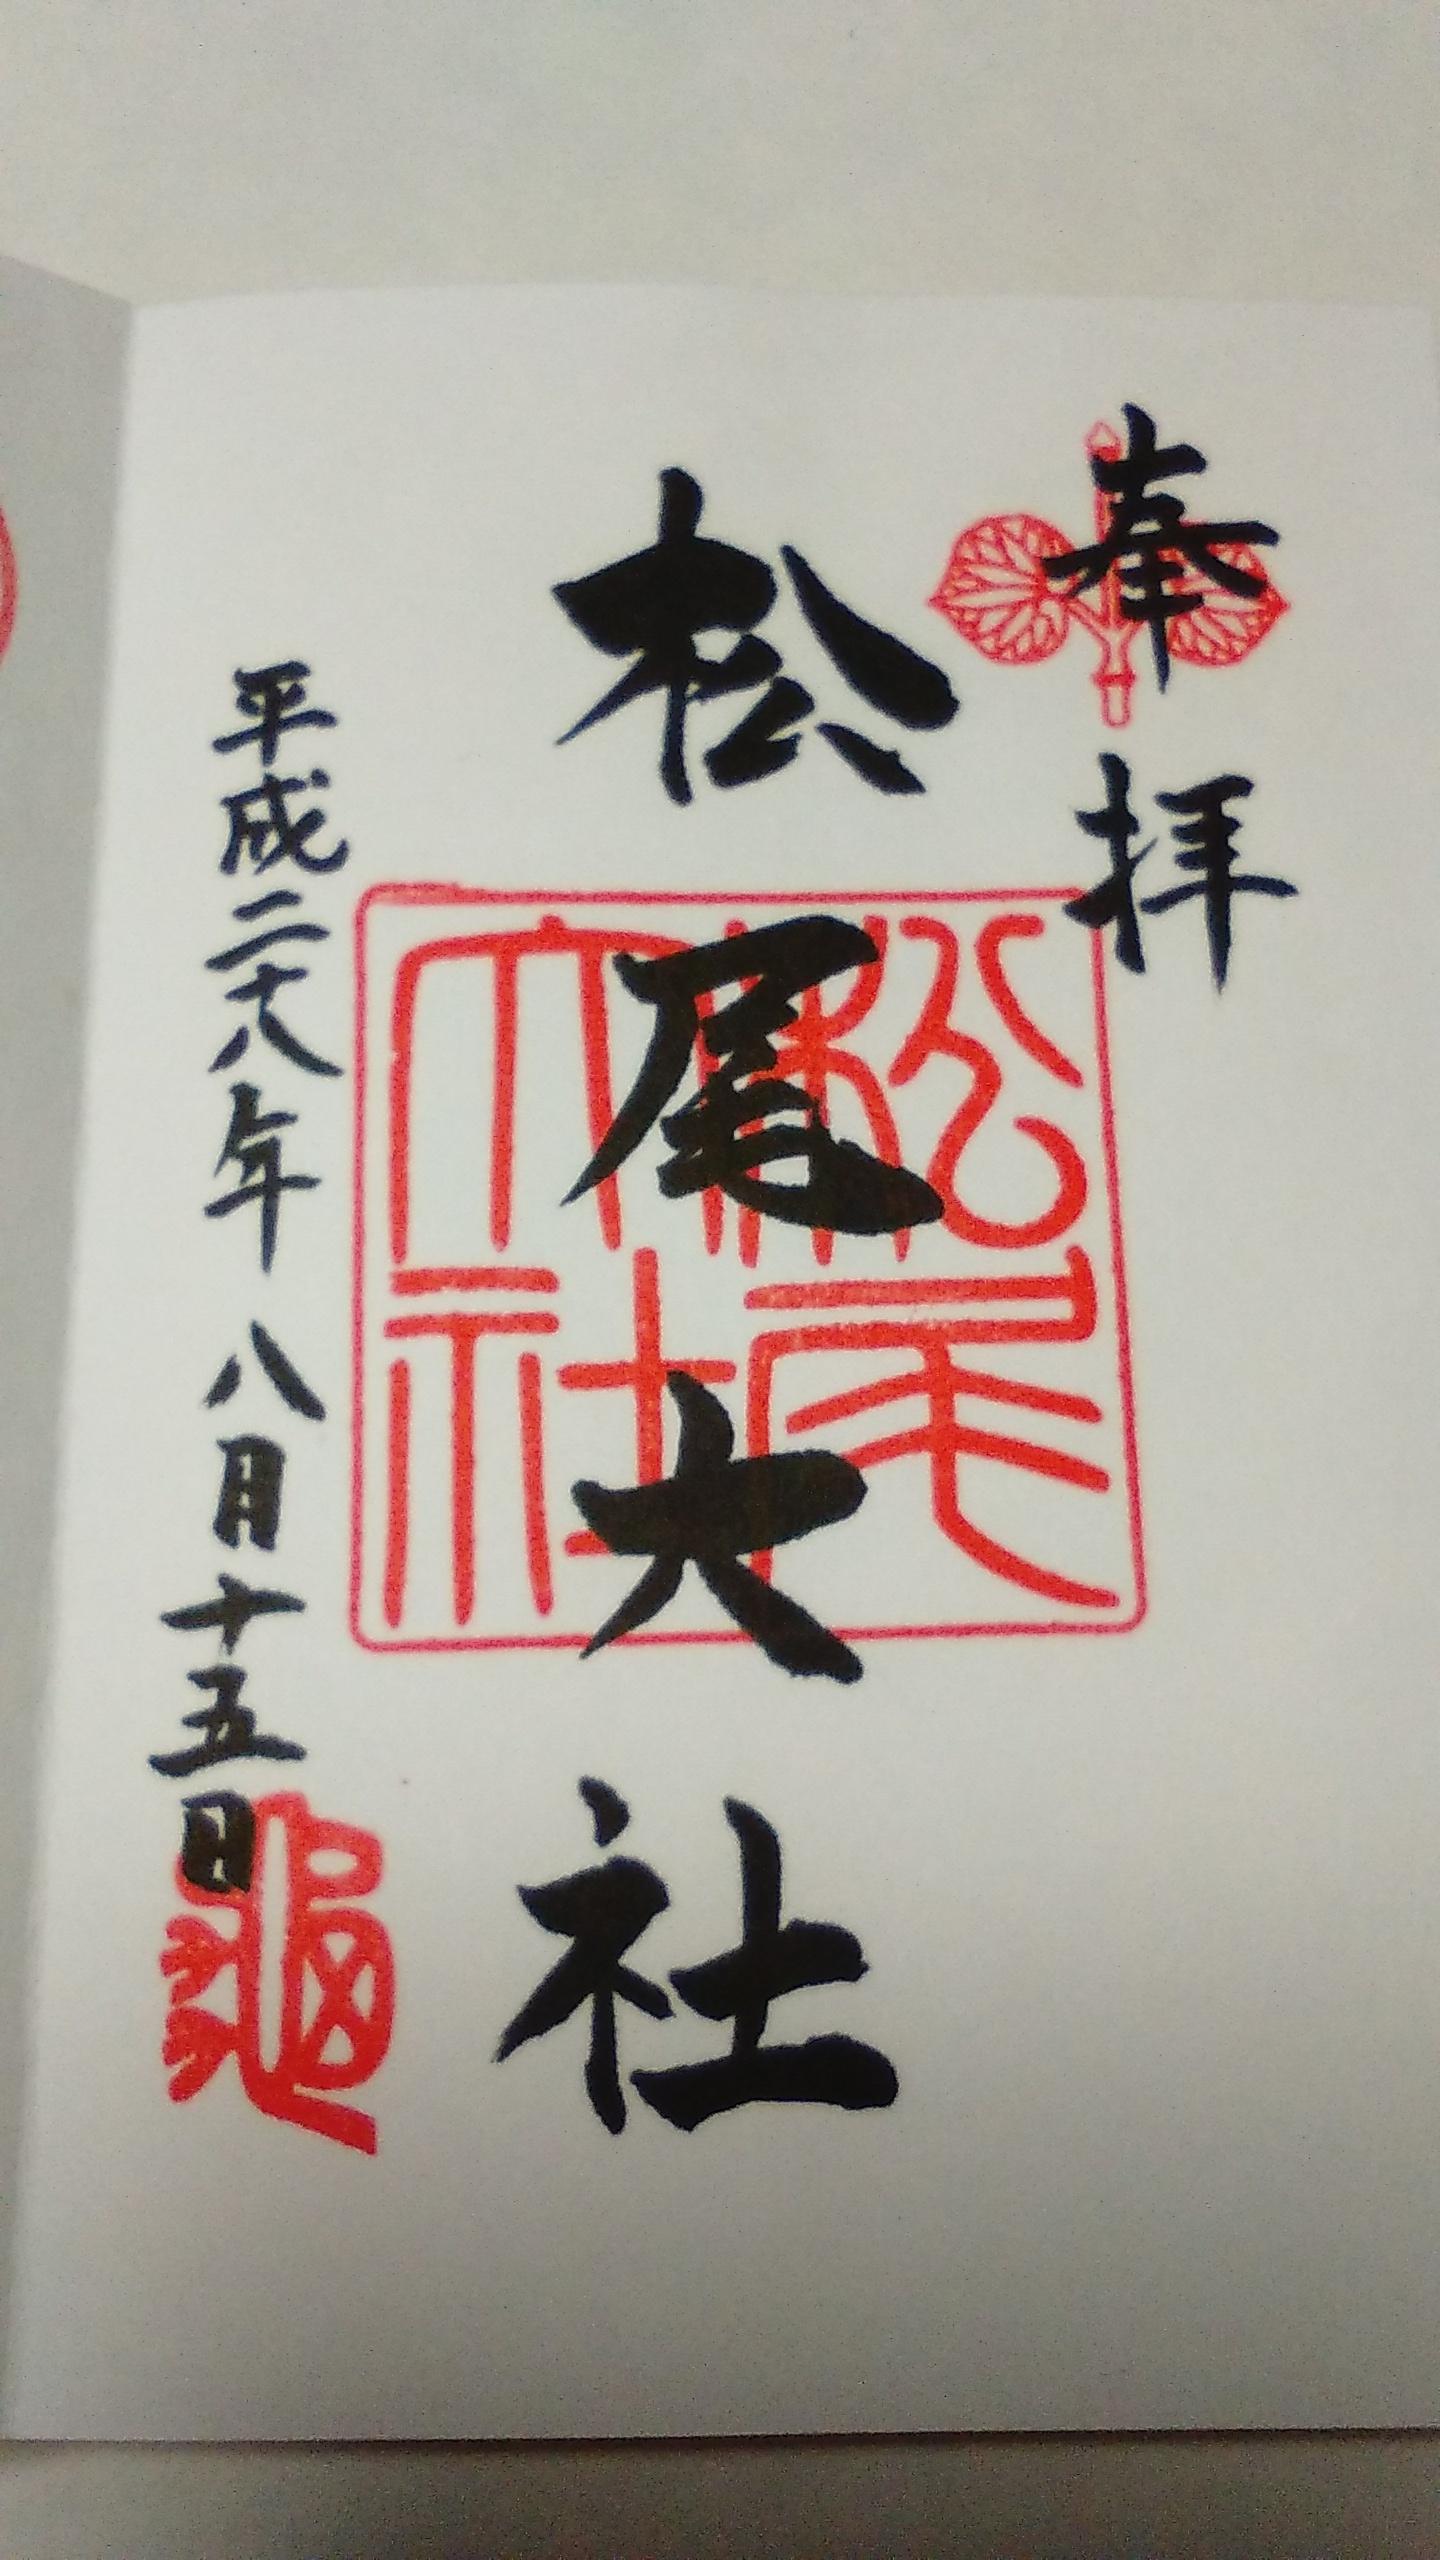 奉拝
松尾大社
松尾大社
平成二十八年 八月十五日
亀